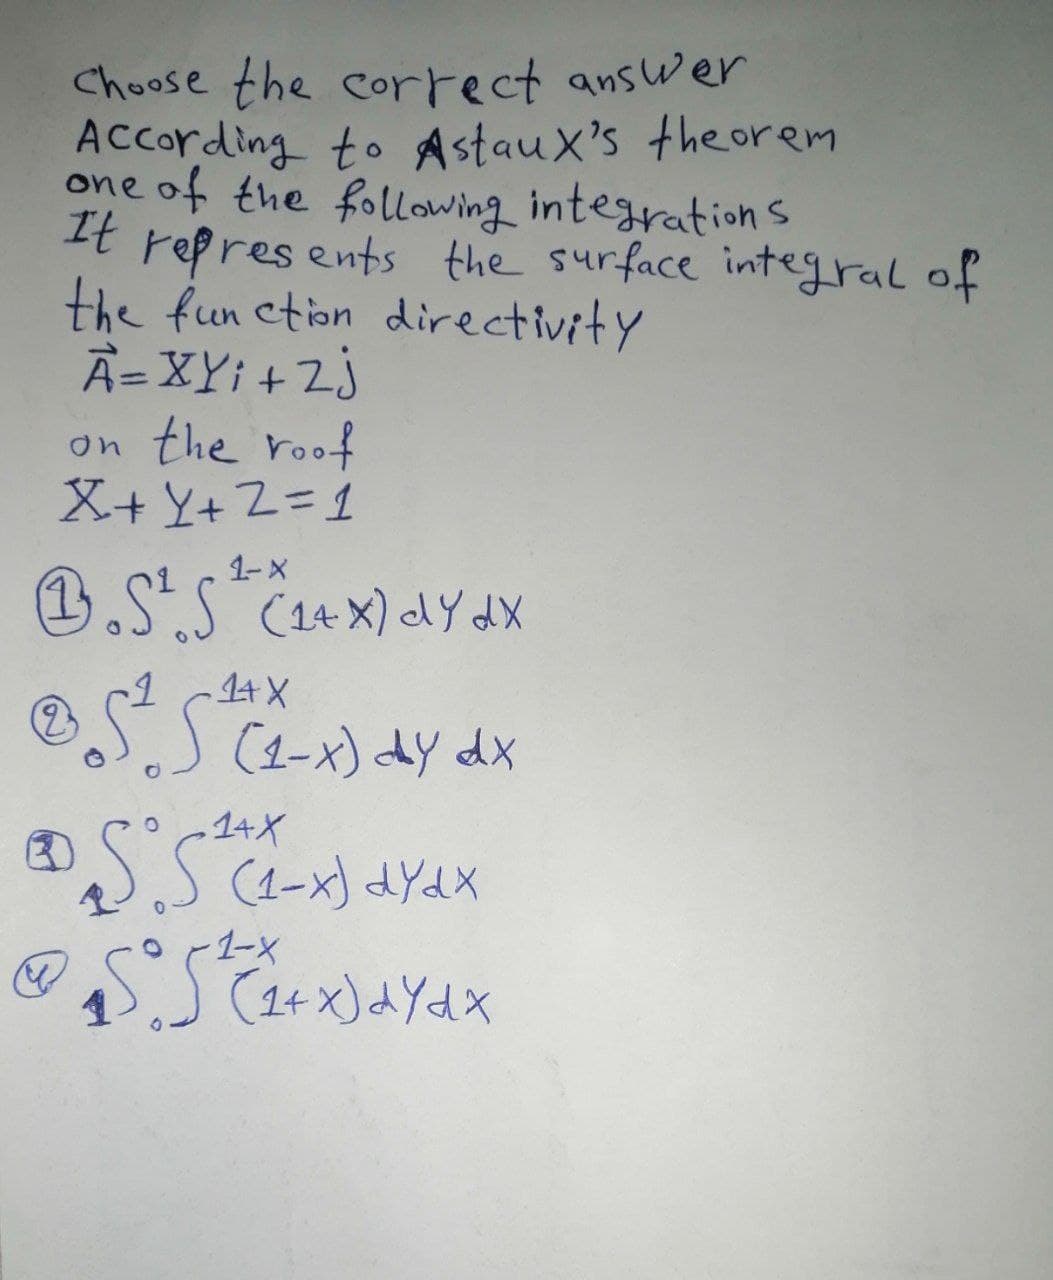 Choose the correct answer
According to Astaux's theorem
one of the following integrations
It represents the surface integral of
the function directivity
A⃗ = XYi + Zj
on the roof
X + Y + Z = 1
① ₀∫¹ ₀∫¹⁻ˣ (1+X) dY dX
② ₀∫¹ ₀∫¹⁺ˣ (1-x) dY dx
③ ₁∫⁰ ₀∫¹⁺ˣ (1-x) dYdX
④ ₁∫⁰ ₀∫¹⁻ˣ (1+x) dYdx